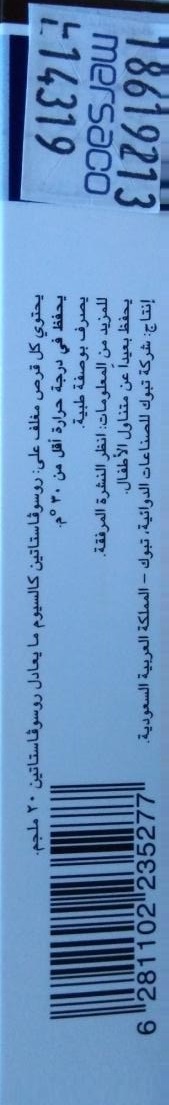 18619213
mersaco
L14319
يحتوي كل قرص مغلف على: روسوفاستاتين كالسيوم ما يعادل روسوفاستاتين ٢٠ ملجم.
يحفظ في درجة حرارة أقل من ٣٠ °م.
يصرف بوصفة طبية.
للمزيد من المعلومات: انظر النشرة المرفقة.
يحفظ بعيداً عن متناول الأطفال.
إنتاج: شركة تبوك للصناعات الدوائية، تبوك – المملكة العربية السعودية.
6 281102 235277